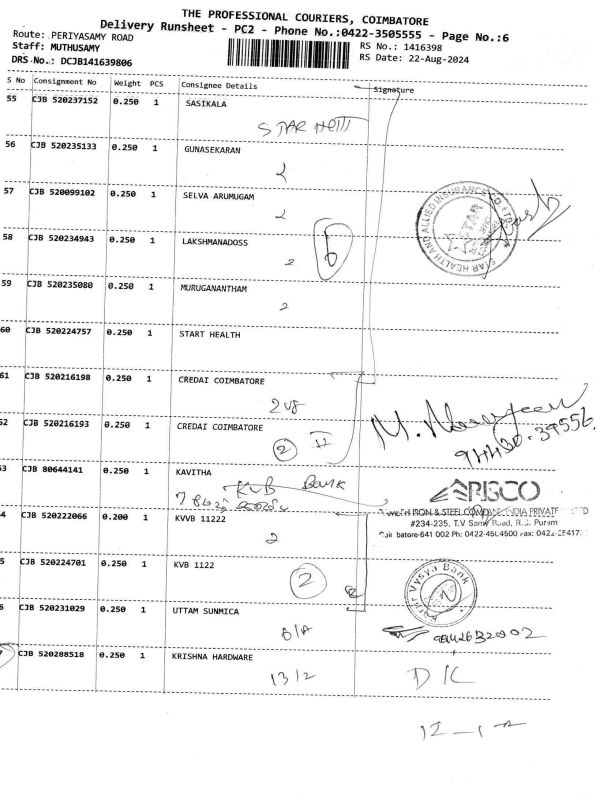 THE PROFESSIONAL COURIERS, COIMBATORE
Delivery Runsheet - PC2 - Phone No.:0422-3505555 - Page No.:6
Route: PERIYASAMY ROAD
Staff: MUTHUSAMY
DRS No.: DCJB141639806
RS No.: 1416398
RS Date: 22-Aug-2024
S No Consignment No Weight PCS Consignee Details Signature
55 CJB 520237152 0.250 1 SASIKALA
STAR
56 CJB 520235133 0.250 1 GUNASEKARAN
2
57 CJB 520099102 0.250 1 SELVA ARUMUGAM
2
58 CJB 520234943 0.250 1 LAKSHMANADOSS
2 6
STAR HEALTH AND ALLIED INSURANCE CO. LTD.
STAR
59 CJB 520235080 0.250 1 MURUGANANTHAM
2
60 CJB 520224757 0.250 1 START HEALTH
61 CJB 520216198 0.250 1 CREDAI COIMBATORE
62 CJB 520216193 0.250 1 CREDAI COIMBATORE
2 II
94430-39556
63 CJB 80644141 0.250 1 KAVITHA
KVB BANK
ARISCO
IRON & STEEL COMPANY INDIA PRIVATE LTD
#234-235, T.V Samy Road, R.S. Puram
batore-641 002 Ph: 0422-4504500 Fax: 0422-254177
4 CJB 520222066 0.200 1 KVVB 11222
2
5 CJB 520224701 0.250 1 KVB 1122
2
Karur Vysya Bank
6 CJB 520231029 0.250 1 UTTAM SUNMICA
6/A
9442632002
7 CJB 520288518 0.250 1 KRISHNA HARDWARE
13/2
DK